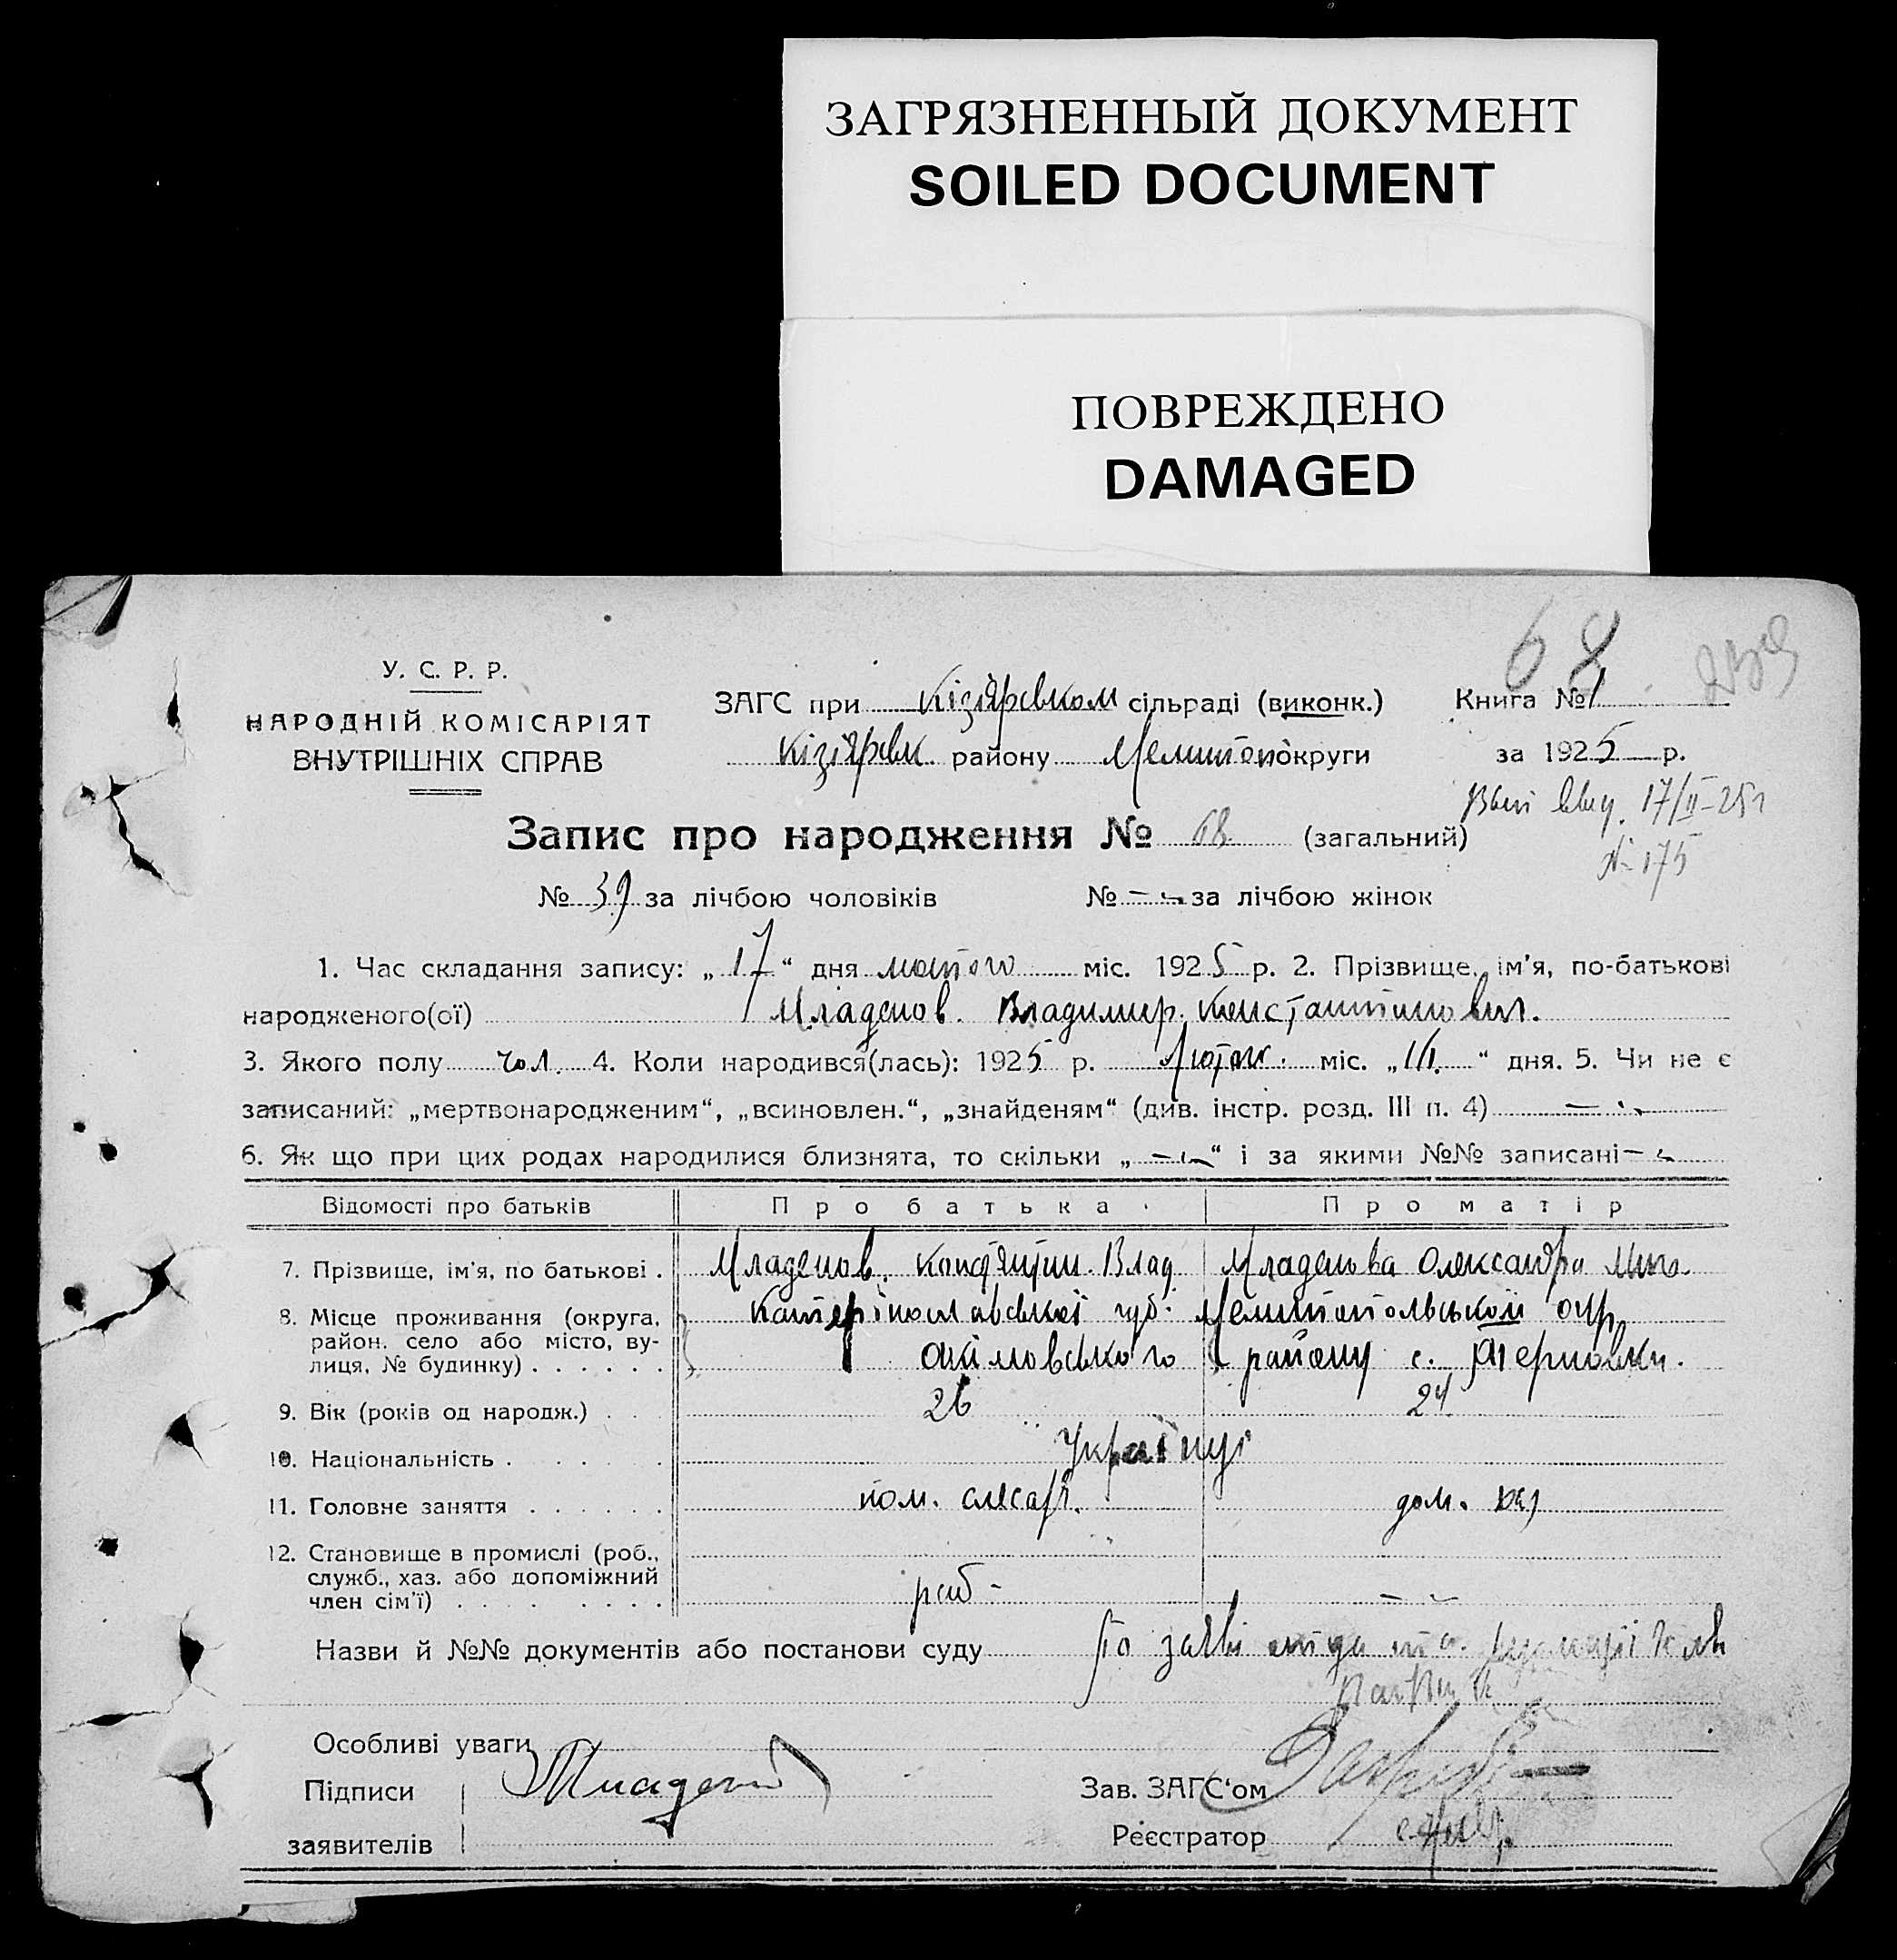 ЗАГРЯЗНЕННЫЙ ДОКУМЕНТ
SOILED DOCUMENT
ПОВРЕЖДЕНО
DAMAGED
68
У. С. Р. Р.
НАРОДНІЙ КОМІСАРІЯТ
ВНУТРІШНІХ СПРАВ
ЗАГС при Кізіярвком сільраді (виконк.)
Кізіярвк. району Мелитоп округи
Книга № 1
за 1925 р.
17/II-25 г
№ 175
Запис про народження № 68 (загальний)
№ 39 за лічбою чоловіків № — за лічбою жінок
1. Час складання запису: „ 17 “ дня лютого міс. 1925 р. 2. Прізвище, ім'я, по-батькові
народженого(ої) Младенов. Владимир. Константинович.
3. Якого полу чол. 4. Коли народився(лась): 1925 р. Лютого міс. „ “ дня. 5. Чи не є
записаний: „мертвонародженим“, „всиновлен.“, „знайденям“ (див. інстр. розд. III п. 4) —
6. Як що при цих родах народилися близнята, то скільки „ — “ і за якими №№ записані —
Відомості про батьків Про батька Про матір
7. Прізвище, ім'я, по батькові . Младенов. Констянтин. Влад Младенова Олександра
8. Місце проживання (округа, район, село або місто, вулиця, № будинку) . . . . . .
Катеринославської губ. Мелитопольської окр
Якімовського району с. Терновки.
9. Вік (років од народж.) . . . 26 24
10. Національність . . . . . . Українці
11. Головне заняття . . . . . . пом. слесаря. дом. хаз
12. Становище в промислі (роб., служб., хаз. або допоміжний член сім'ї) . . . . . . . . . раб - —
Назви й №№ документів або постанови суду По заяві отця та
Особливі уваги
Підписи заявителів Младенов
Зав. ЗАГС‘ом
Реєстратор